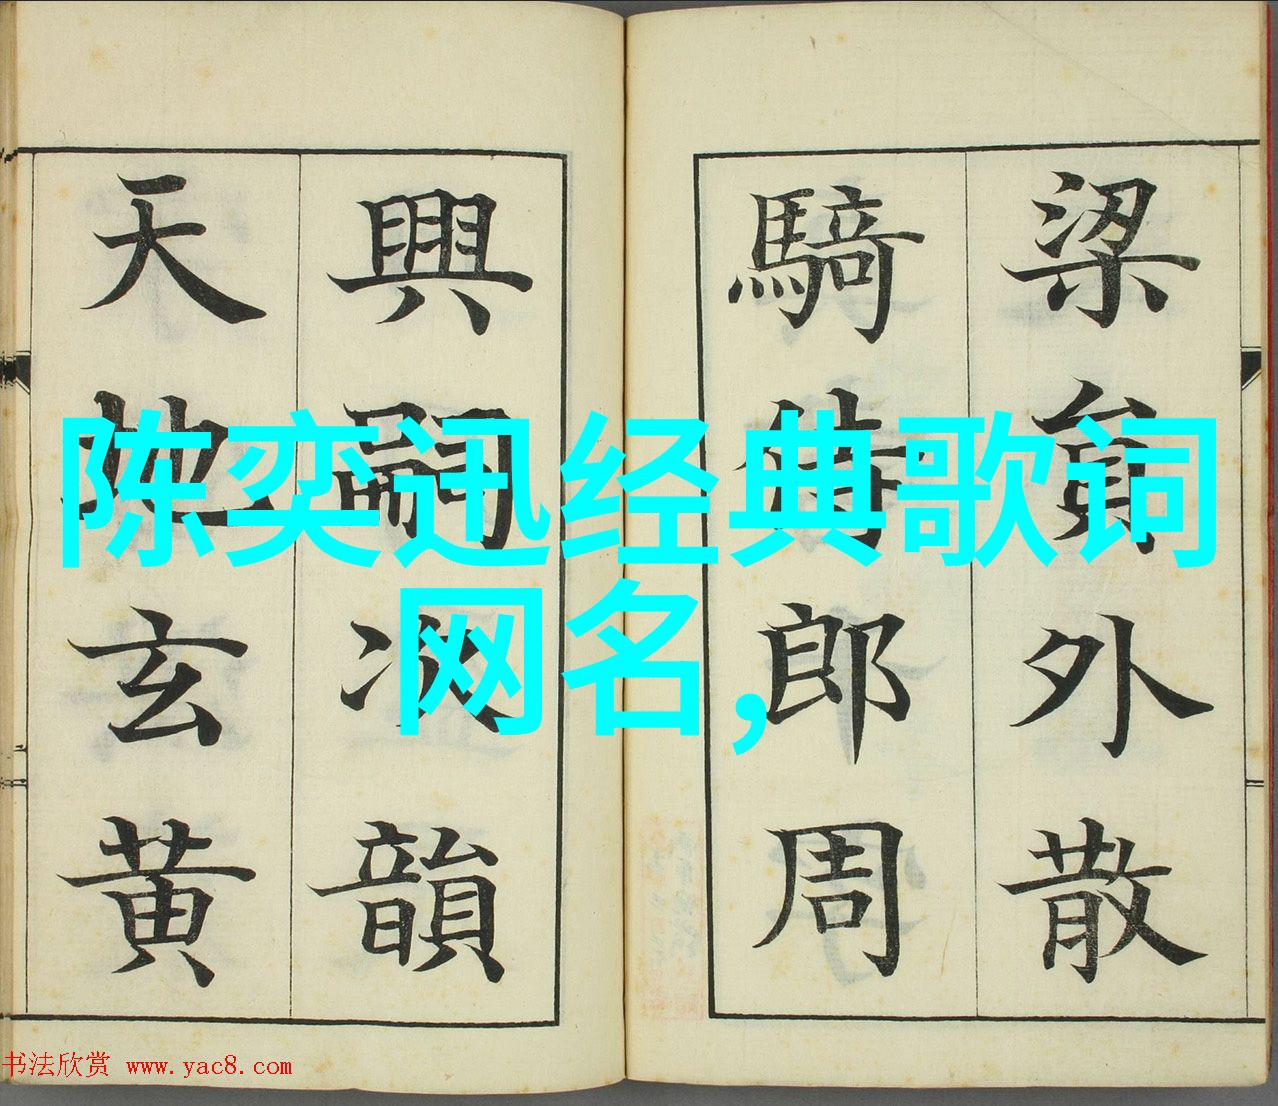 陈奕迅经典歌词
网名,
梁貟外散
騎侍郎周
興嗣次韻
天地玄黄
书法欣赏 www.yac8.com